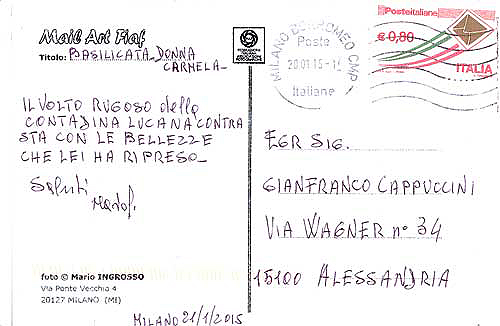 Mail Art Fiaf
Titolo: BASILICATA_DONNA
CARMELA_
IL VOLTO RUGOSO della
CONTADINA LUCANA CONTRA
STA CON LE BELLEZZE
CHE LEI HA RIPRESO_
Saluti
foto © Mario INGROSSO
Via Ponte Vecchio 4
20127 MILANO (MI)
MILANO 21/1/2015
MILANO BORROMEO CMP
Poste
20.01.15-1
Italiane
Posteitaliane
€ 0,80
ITALIA
EGR SIG.
GIANFRANCO CAPPUCCINI
VIA WAGNER n° 34
15100 ALESSANDRIA